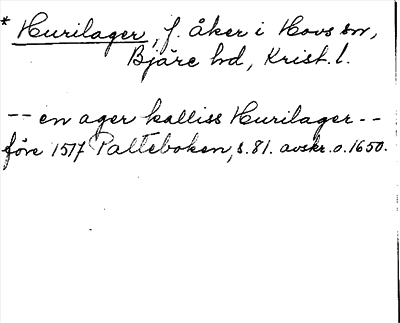 * Hurilager, f. åker i Hovs sn,
Bjäre hd, Krist. l.
-- en ager kalliss Hurilager --
före 1517 Palteboken, s. 81. avskr. o. 1650.